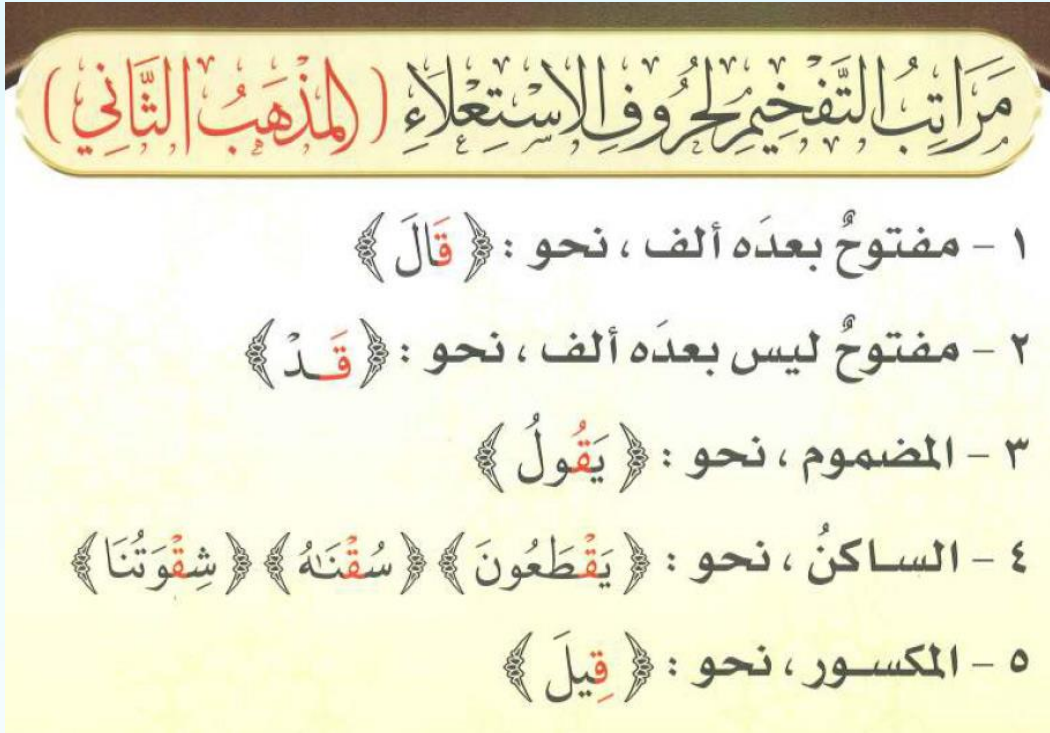 مَرَاتِبُ التَّفْخِيمِ لِحُرُوفِ الِاسْتِعْلَاءِ ( المَذْهَبُ الثَّانِي )
١ - مفتوحٌ بعدَه ألف ، نحو : ﴿ قَالَ ﴾
٢ - مفتوحٌ ليس بعدَه ألف ، نحو : ﴿ قَـدْ ﴾
٣ - المضموم ، نحو : ﴿ يَقُولُ ﴾
٤ - الساكنُ ، نحو : ﴿ يَقْطَعُونَ ﴾ ﴿ سُقْنَٰهُ ﴾ ﴿ شِقْوَتُنَا ﴾
٥ - المكسـور ، نحو : ﴿ قِيلَ ﴾